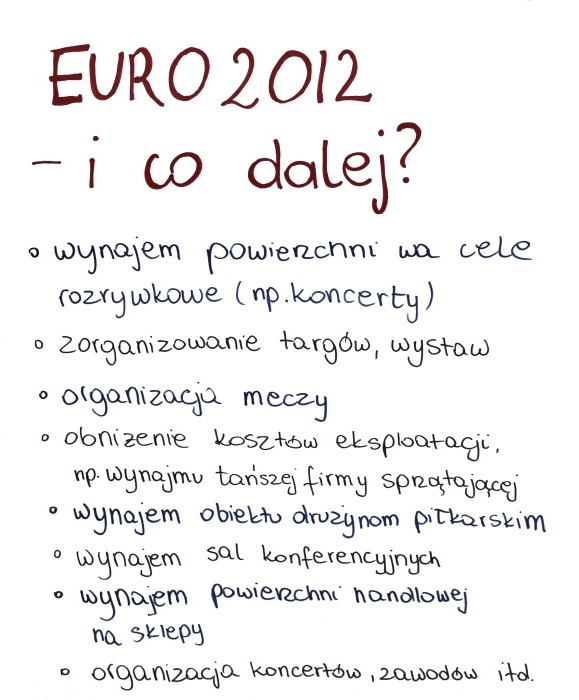 EURO 2012
- i co dalej?
o wynajem powierzchni na cele
rozrywkowe (np. koncerty)
o zorganizowanie targów, wystaw
o organizacja meczy
o obniżenie kosztów eksploatacji,
np. wynajmu tańszej firmy sprzątającej
o wynajem obiektu drużynom piłkarskim
o wynajem sal konferencyjnych
o wynajem powierzchni handlowej
na sklepy
o organizacja koncertów, zawodów itd.